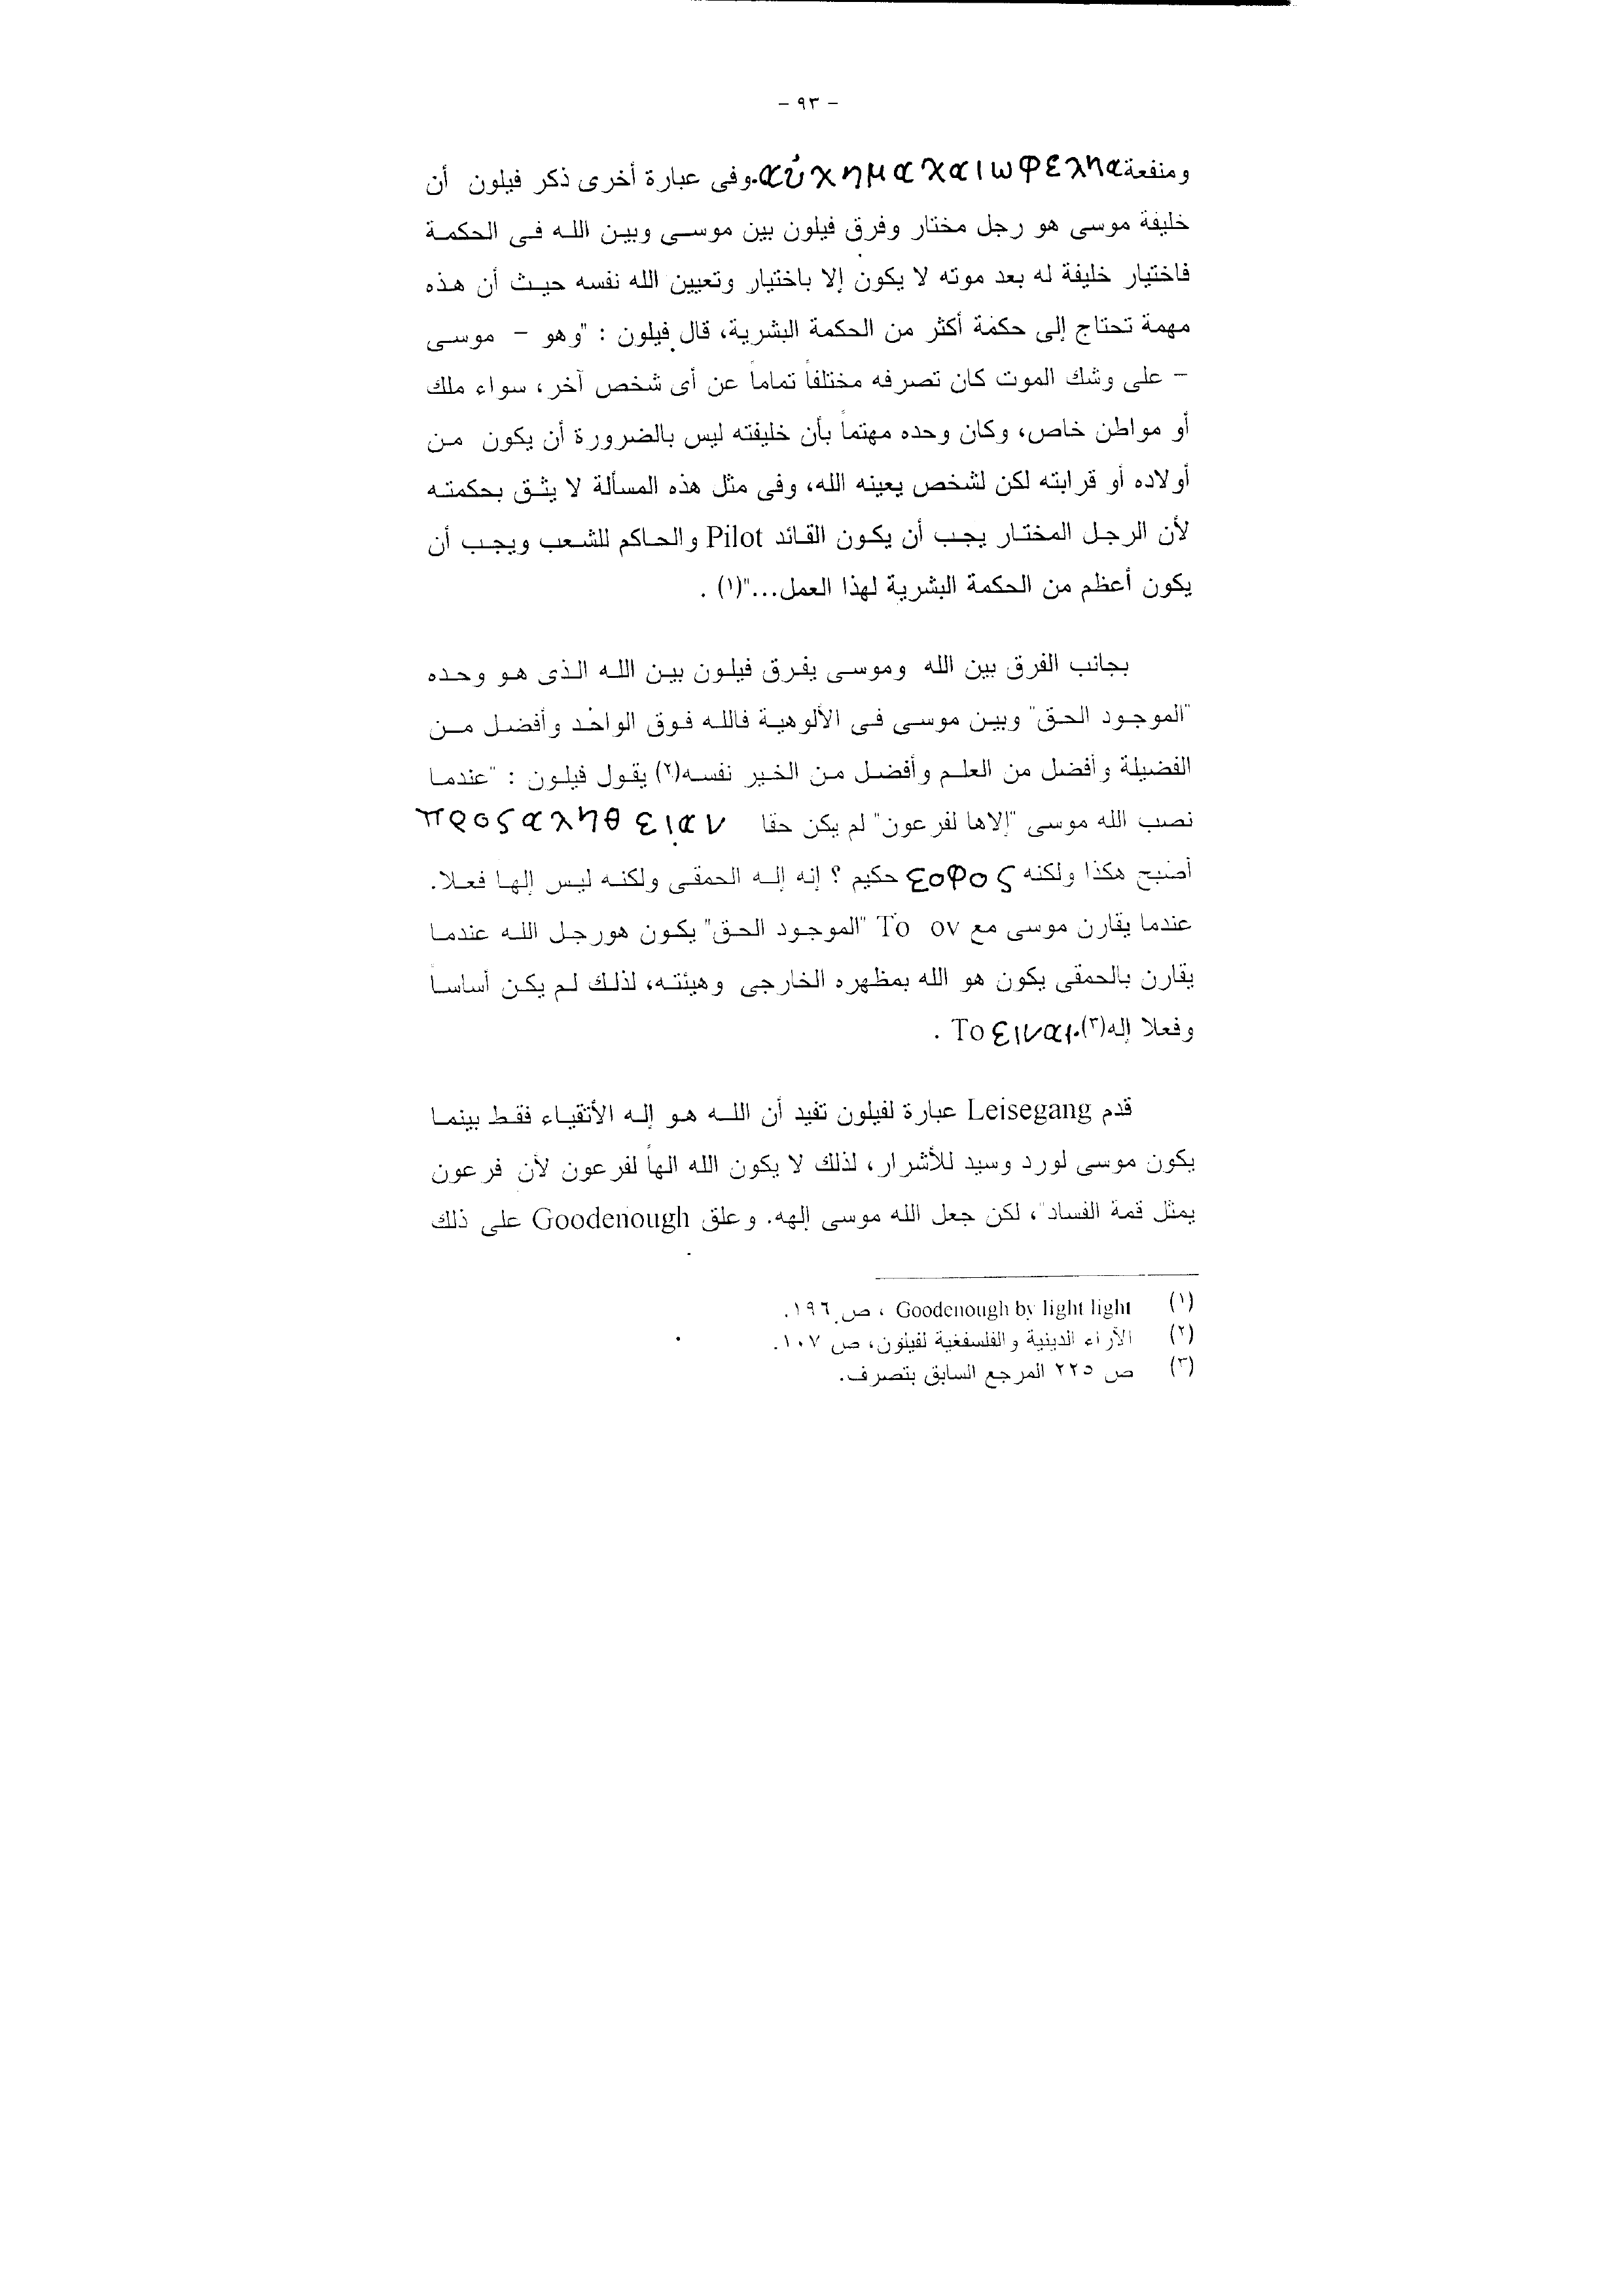 - ٩٣ -
ومنفعة αύχημα χαι ωφεληα. وفى عبارة أخرى ذكر فيلون أن
خليفة موسى هو رجل مختار وفرق فيلون بين موسى وبين الله فى الحكمة
فاختيار خليفة له بعد موته لا يكون إلا باختيار وتعيين الله نفسه حيث أن هذه
مهمة تحتاج إلى حكمة أكثر من الحكمة البشرية، قال فيلون : "وهو – موسى
– على وشك الموت كان تصرفه مختلفاً تماماً عن أى شخص آخر، سواء ملك
أو مواطن خاص، وكان وحده مهتماً بأن خليفته ليس بالضرورة أن يكون من
أولاده أو قرابته لكن لشخص يعينه الله، وفى مثل هذه المسألة لا يثق بحكمته
لأن الرجل المختار يجب أن يكون القائد Pilot والحاكم للشعب ويجب أن
يكون أعظم من الحكمة البشرية لهذا العمل..."(١) .
بجانب الفرق بين الله وموسى يفرق فيلون بين الله الذى هو وحده
"الموجود الحق" وبين موسى فى الألوهية فالله فوق الواحد وأفضل من
الفضيلة وأفضل من العلم وأفضل من الخير نفسه(٢) يقول فيلون : "عندما
نصب الله موسى "إلاها لفرعون" لم يكن حقا προς αληθειαν
أصبح هكذا ولكنه εοφος حكيم ؟ إنه إله الحمقى ولكنه ليس إلها فعلا.
عندما يقارن موسى مع To ov "الموجود الحق" يكون هورجل الله عندما
يقارن بالحمقى يكون هو الله بمظهره الخارجى وهيئته، لذلك لم يكن أساساً
وفعلا إله(٣). To ειναι .
قدم Leisegang عبارة لفيلون تفيد أن الله هو إله الأتقياء فقط بينما
يكون موسى لورد وسيد للأشرار، لذلك لا يكون الله الهاً لفرعون لأن فرعون
يمثل قمة الفساد"، لكن جعل الله موسى إلهه. وعلق Goodenough على ذلك
(١) Goodenough by light light ، ص ١٩٦.
(٢) الآراء الدينية والفلسفغية لفيلون، ص ١٠٧.
(٣) ص ٢٢٥ المرجع السابق بتصرف.